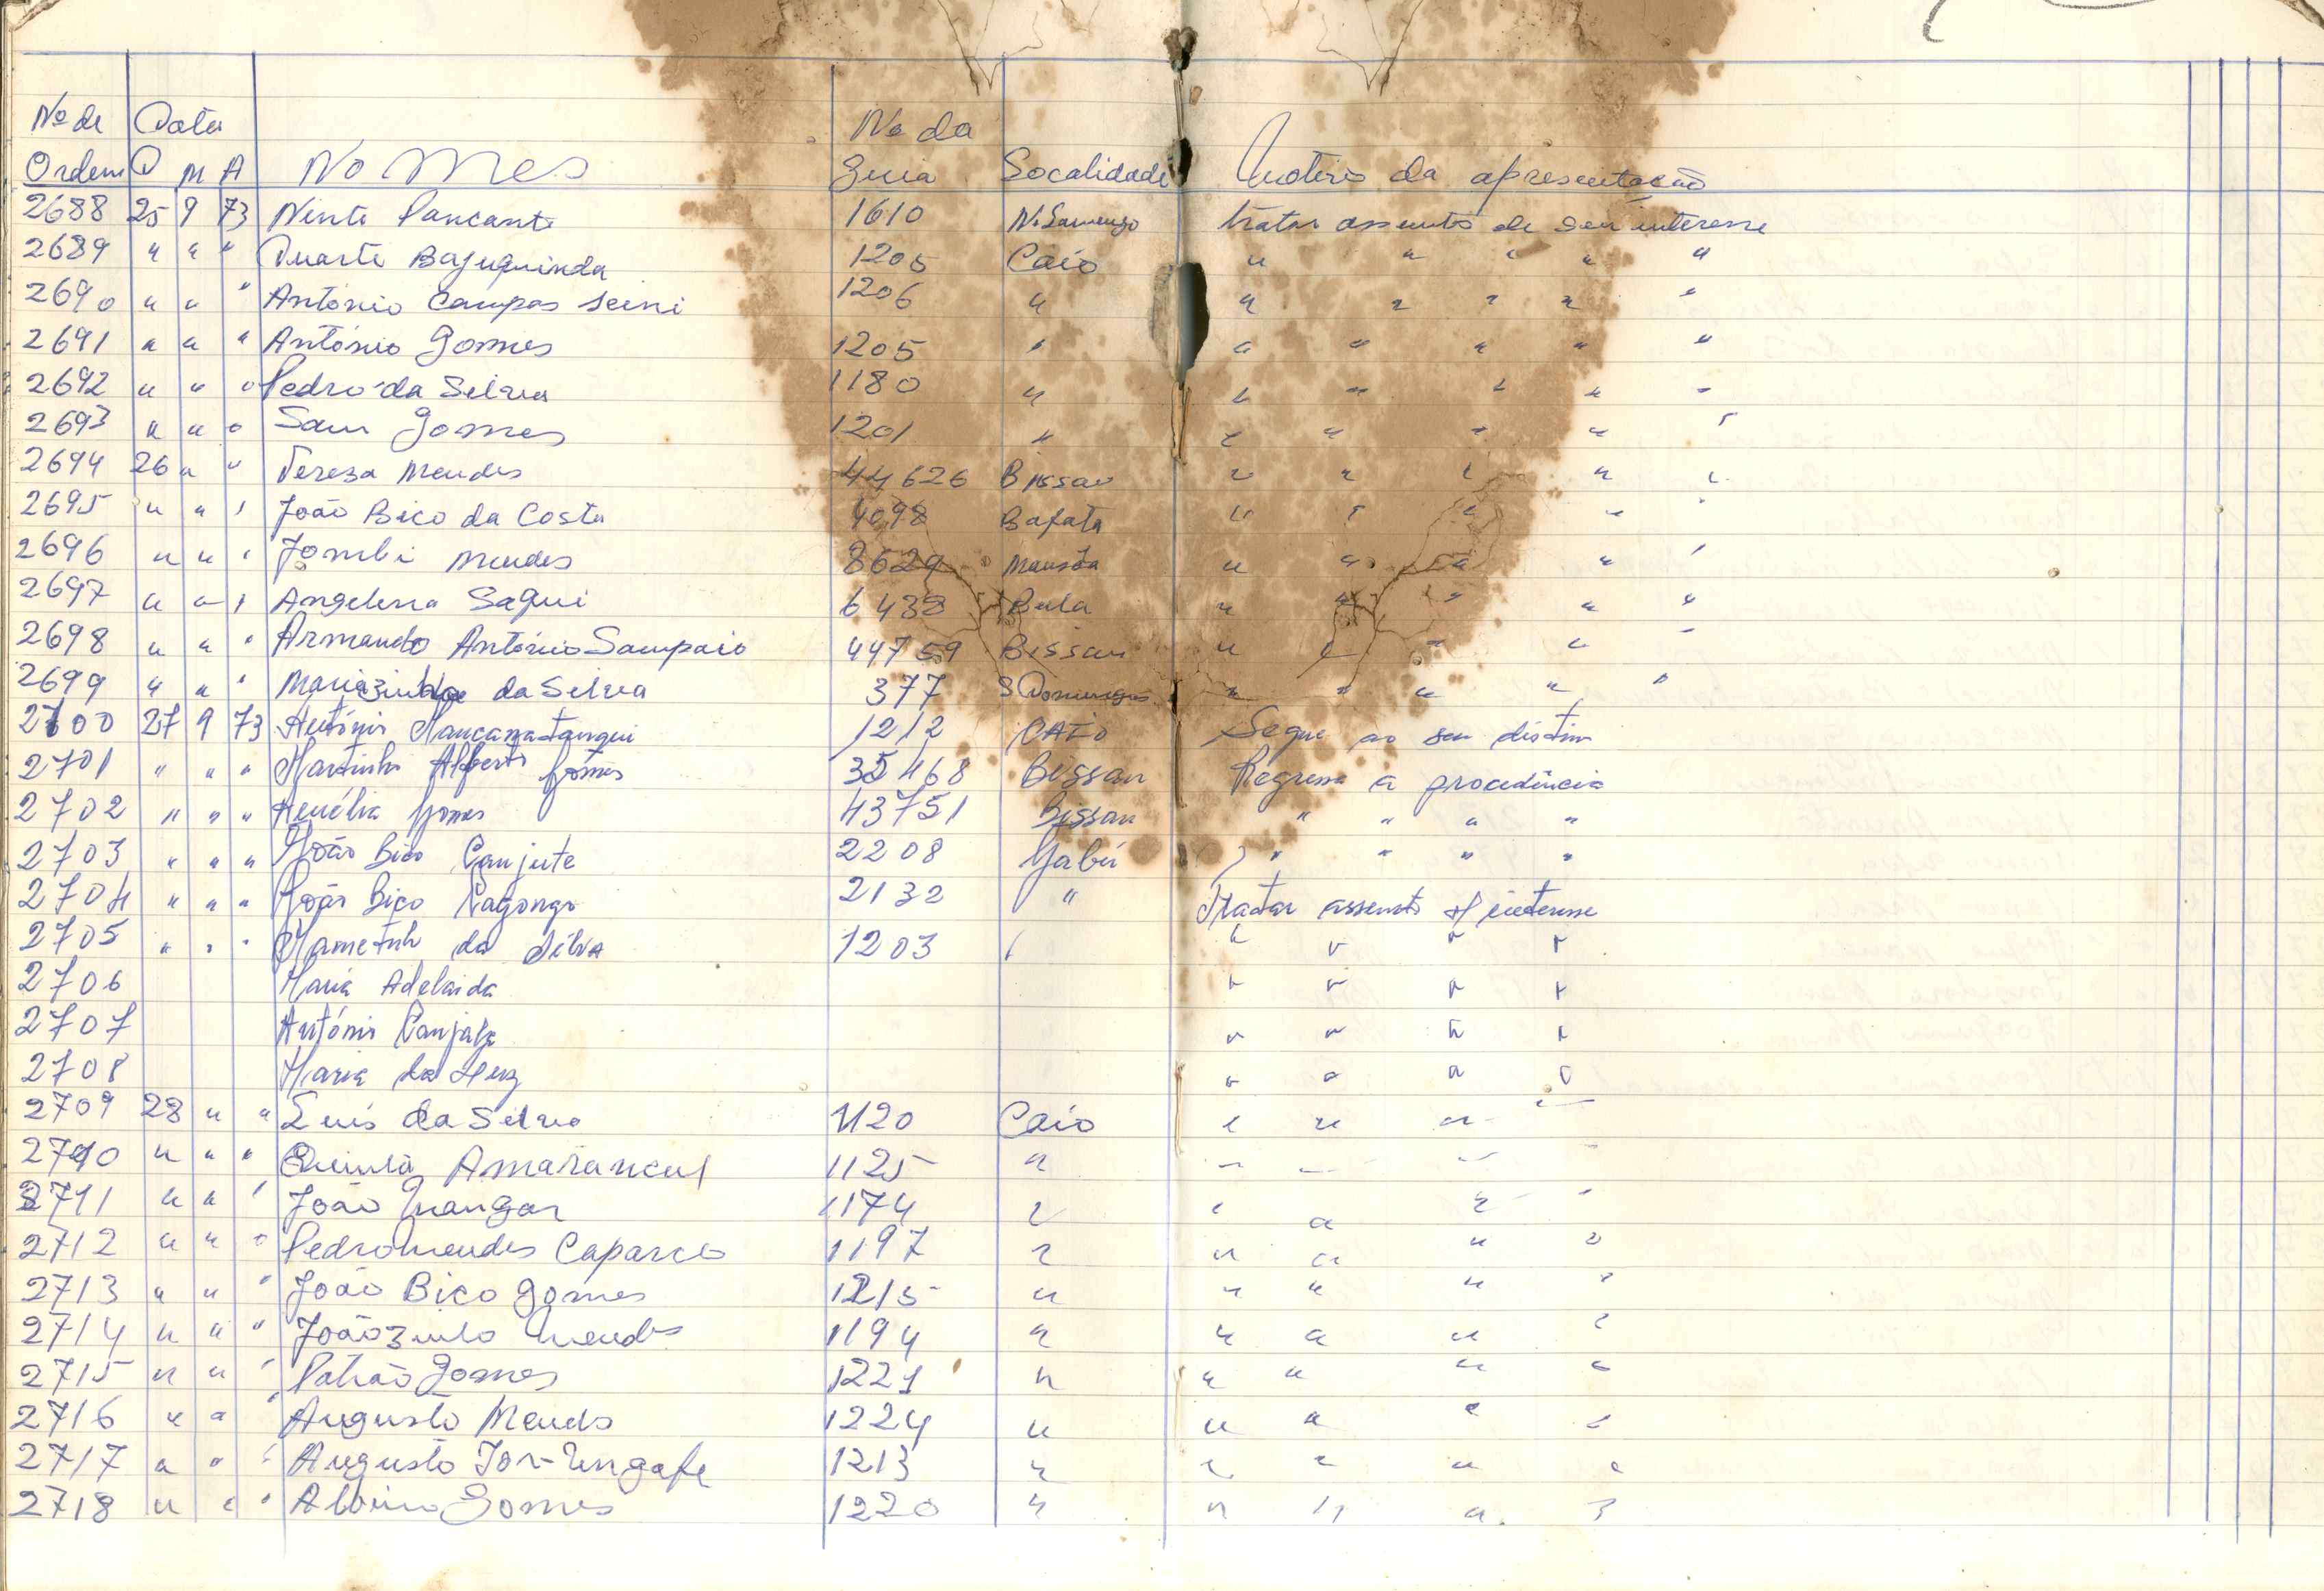 Nº de Data Nº da
Ordem D M A Nomes Guia Localidade Motivo da apresentação
2688 25 9 73 Ninte Cancante 1610 tratar assunto de seu interesse
2689 " " " Duarte Bajuquinda 1205 Caió " " " " "
2690 " " " António Campos Seini 1206 " " " " " "
2691 " " " António Gomes 1205 " " " " " "
2692 " " " Pedro da Silva 1180 " " " " " "
2693 " " " Sam Gomes 1201 " " " " " "
2694 26 " " Tereza Mendes 44626 Bissau " " " " "
2695 " " " João Bico da Costa 4098 Bafata " " " " "
2696 " " " Jombi Mendes 8629 Mansôa " " " " "
2697 " " " Angelina Sagui 6438 Bula " " " " "
2698 " " " Armando António Sampaio 44759 Bissau " " " " "
2699 " " " Mariazinha da Silva 377 S Domingos " " " " "
2700 27 9 73 António 1212 CAIÓ Segue ao seu distino
2701 " " " Martinho Alberto Gomes 35468 Bissau Regressa a procedência
2702 " " " Gomes 43751 Bissau " " " "
2703 " " " João Bico Canjute 2208 Gabú " " " "
2704 " " " João Bico Cagongo 2132 " Tratar assunto d/ interesse
2705 " " " da Silva 1203 " " " " "
2706 Maria Adelaida " " " "
2707 António " " " "
2708 Maria da " " " "
2709 28 " " Luís da Silva 1120 Caió " " " "
2710 " " " Quintà Amarancul 1125 " " " " "
2711 " " " João 1174 " " " " "
2712 " " " Pedro Mendes Caparco 1197 " " " " "
2713 " " " João Bico Gomes 1215 " " " " "
2714 " " " Joãozinho Mendes 1194 " " " " "
2715 " " " Patrão Gomes 1221 " " " " "
2716 " " " Augusto Mendes 1224 " " " " "
2717 " " " Augusto 1213 " " " " "
2718 " " " Albino Gomes 1220 " " " " "